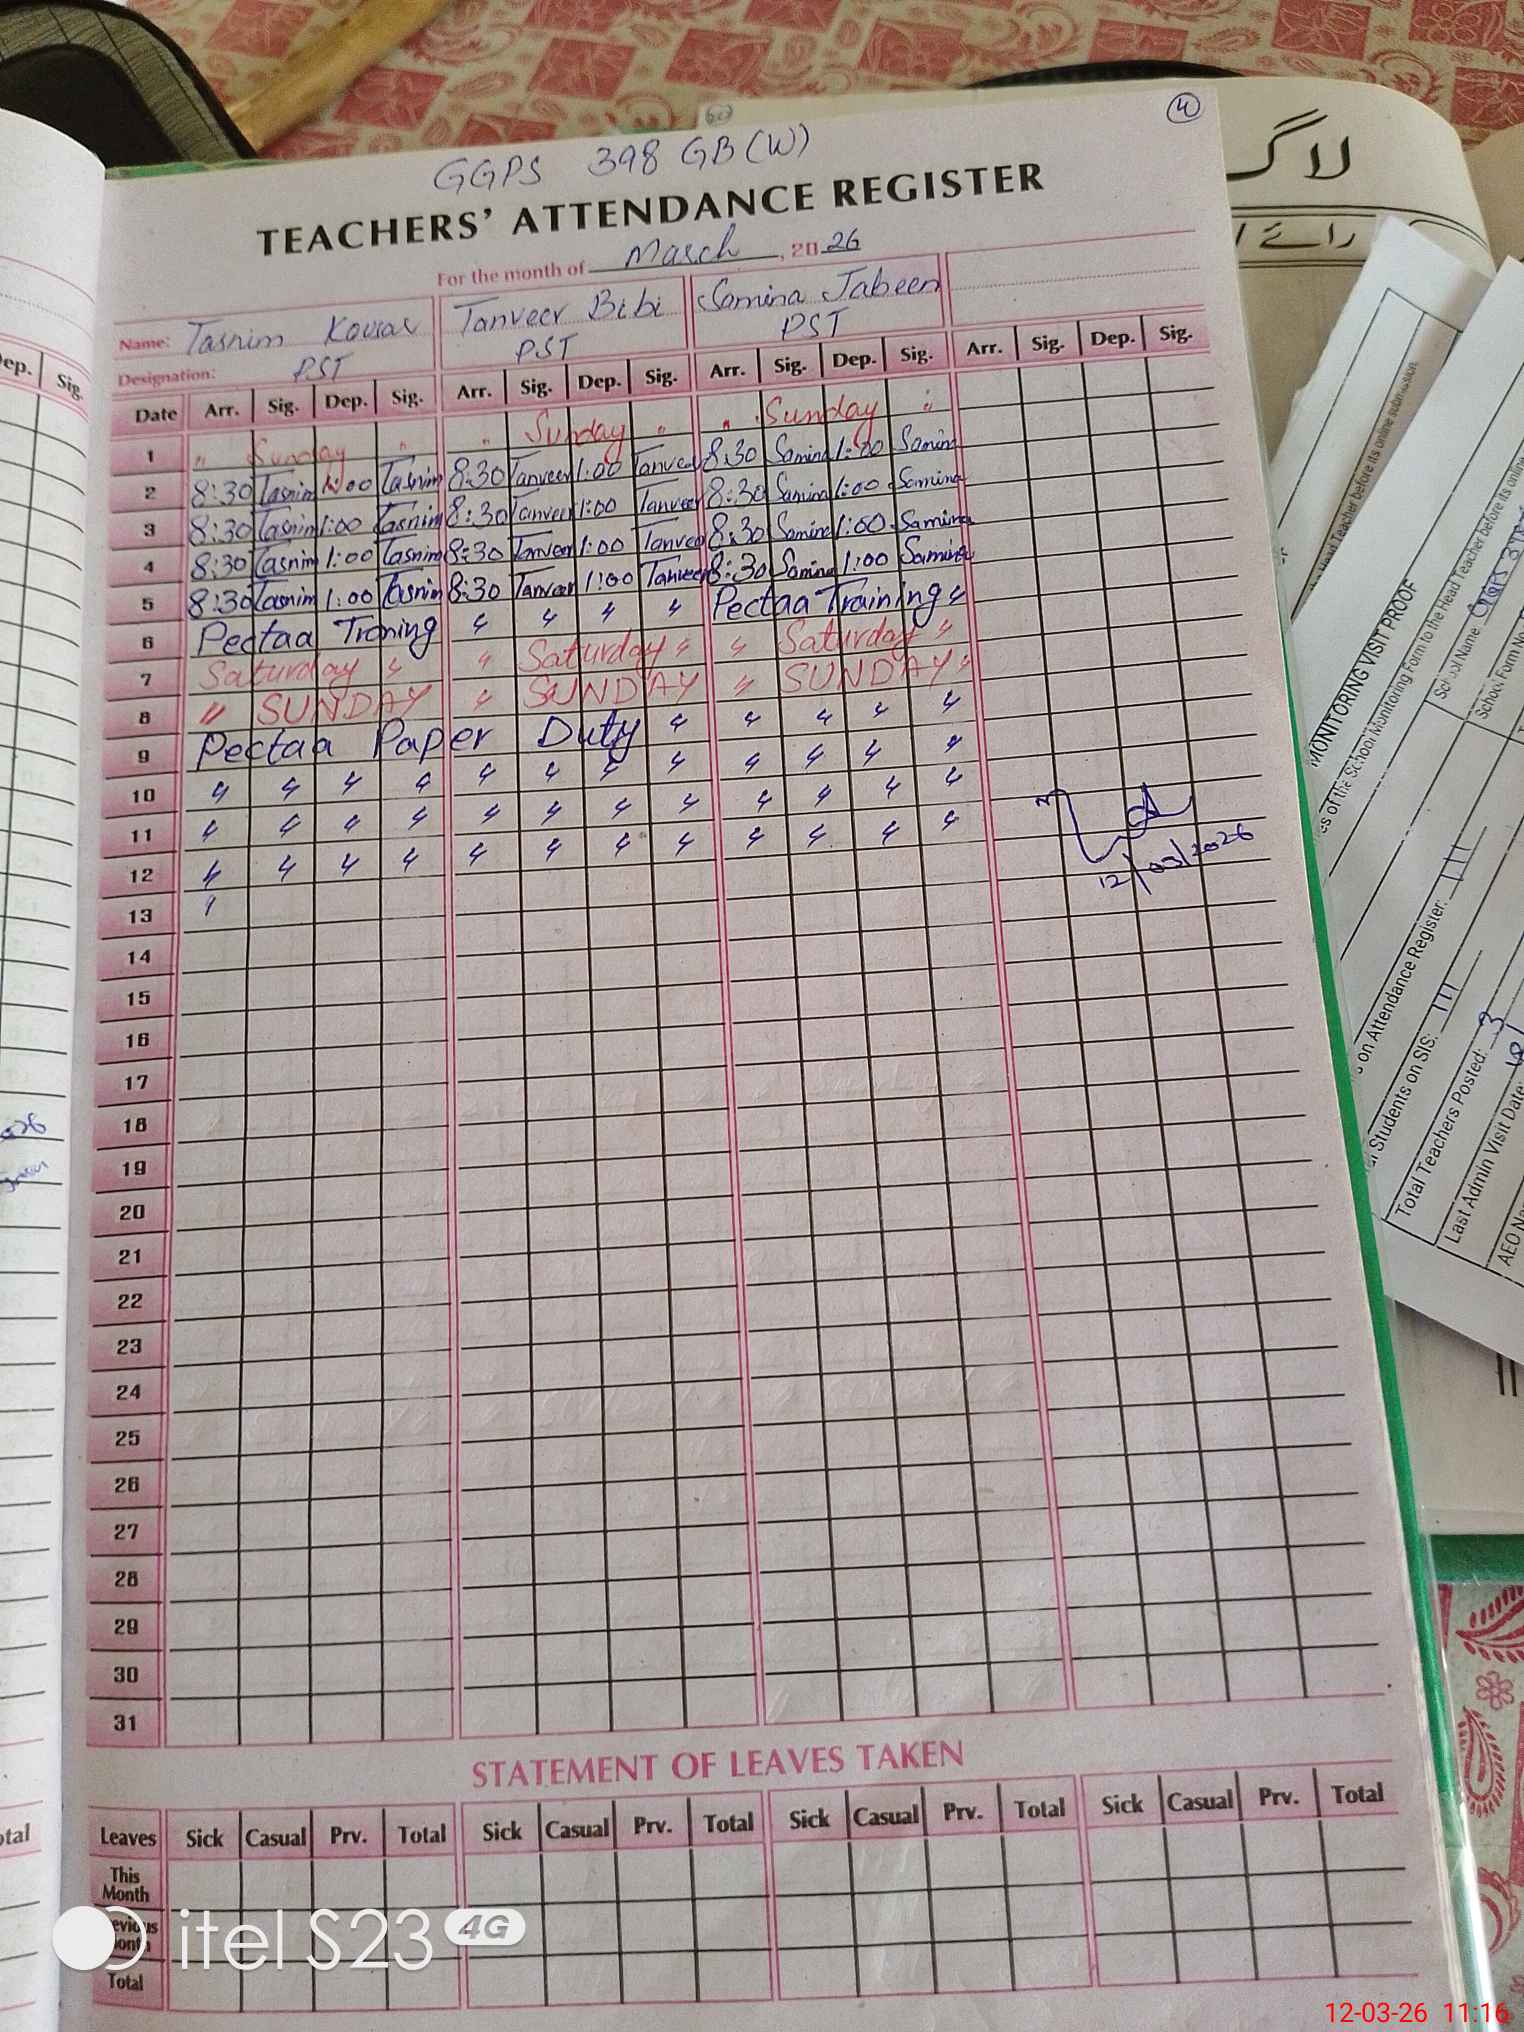 4
GGPS 398 GB (W)
TEACHERS' ATTENDANCE REGISTER
For the month of March, 2026
Name: Tasnim Kousar Tanveer Bibi Samina Jabeen
Designation: PST PST PST
Date Arr. Sig. Dep. Sig. Arr. Sig. Dep. Sig. Arr. Sig. Dep. Sig. Arr. Sig. Dep. Sig.
1 " Sunday " " Sunday " " Sunday "
2 8:30 Tasnim 1:00 Tasnim 8:30 Tanveer 1:00 Tanveer 8:30 Samina 1:00 Samina
3 8:30 Tasnim 1:00 Tasnim 8:30 Tanveer 1:00 Tanveer 8:30 Samina 1:00 Samina
4 8:30 Tasnim 1:00 Tasnim 8:30 Tanveer 1:00 Tanveer 8:30 Samina 1:00 Samina
5 8:30 Tasnim 1:00 Tasnim 8:30 Tanveer 1:00 Tanveer 8:30 Samina 1:00 Samina
6 Pectaa Traning " " " " Pectaa Training "
7 Saturday " " Saturday " " Saturday "
8 " SUNDAY " SUNDAY " SUNDAY "
9 Pectaa Paper Duty " " " " "
10 " " " " " " " " " " " "
11 " " " " " " " " " " " "
12 " " " " " " " " " " " "
12/03/2026
13
14
15
16
17
18
19
20
21
22
23
24
25
26
27
28
29
30
31
STATEMENT OF LEAVES TAKEN
Leaves Sick Casual Prv. Total Sick Casual Prv. Total Sick Casual Prv. Total Sick Casual Prv. Total
This Month
Total
itel S23 4G
12-03-26 11:16
ep. Sig.
otal
لاگ
MONITORING VISIT PROOF
es of the School Monitoring Form to the Head Teacher before its online
School Name: GGPS 398
School Form No
on Attendance Register: 111
Students on SIS: 111
Total Teachers Posted: 3
Last Admin Visit Date:
AEO
Head Teacher before its online submission